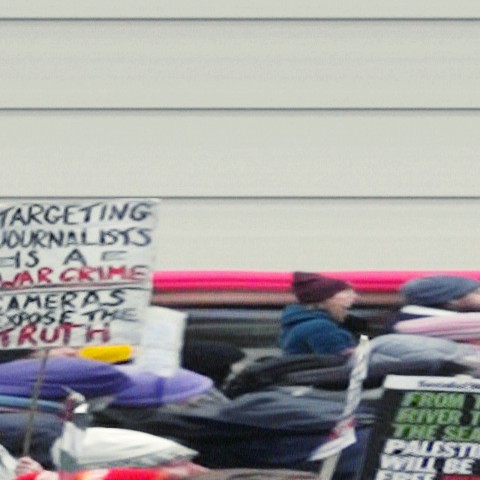 TARGETING
JOURNALISTS
IS A
WAR CRIME
CAMERAS
EXPOSE THE
TRUTH
FROM T
RIVER T
THE SEA
PALESTI
WILL BE
FREE